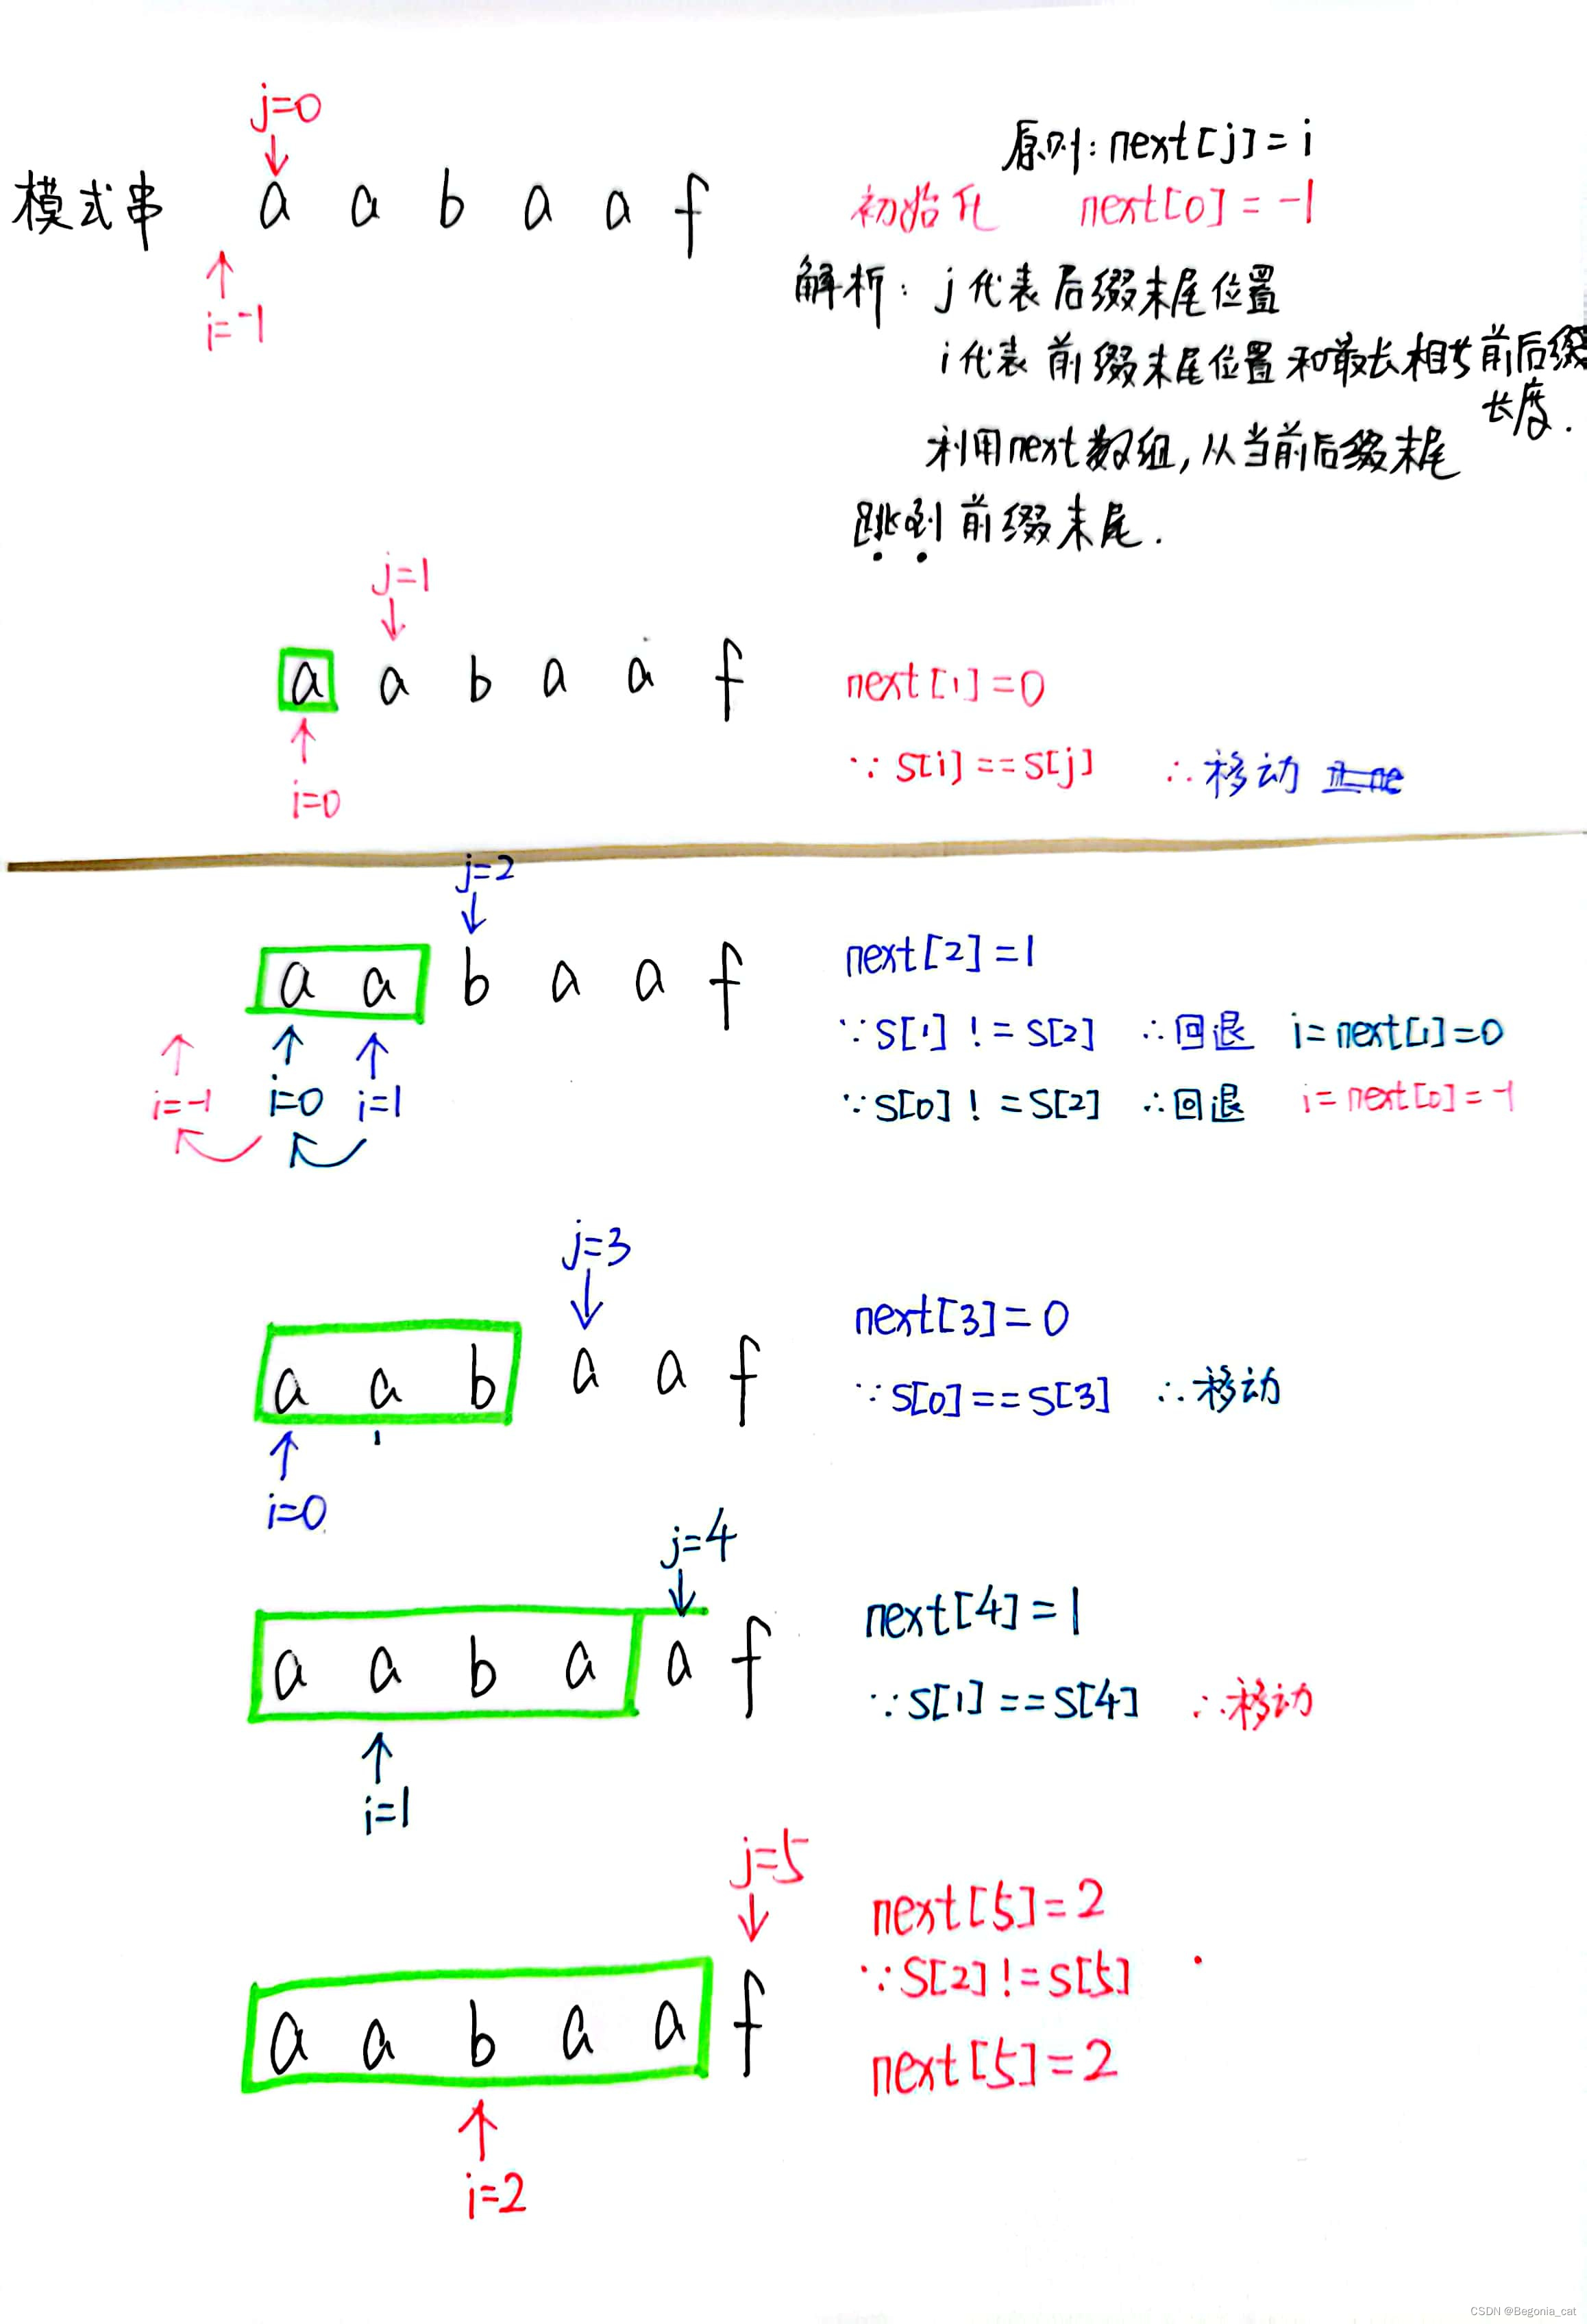 j=0
原则: next[j]=i
模式串 a a b a a f
初始化 next[0]=-1
i=-1
解析: j代表后缀末尾位置
i代表前缀末尾位置和最长相等前后缀
长度.
利用next数组,从当前后缀末尾
跳到前缀末尾.
j=1
a a b a a f
next[1]=0
i=0
∵ S[i]==S[j] ∴移动
j=2
a a b a a f
next[2]=1
∵S[1] !=S[2] ∴回退 i=next[1]=0
i=-1 i=0 i=1
∵S[0] !=S[2] ∴回退 i=next[0]=-1
j=3
a a b a a f
next[3]=0
∵S[0]==S[3] ∴移动
i=0
j=4
a a b a a f
next[4]=1
∵S[1]==S[4] ∴移动
i=1
j=5
next[5]=2
∵S[2]!=S[5]
a a b a a f
next[5]=2
i=2
CSDN @Begonia_cat